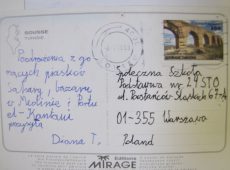 SOUSSE
TUNISIE
Pozdrowienia z go-
rących piasków
Sahary, bazaru
w Medinie i Portu
el-Kantaui
przesyła
Diana T.
Społeczna Szkoła
Podstawowa nr 27 STO
ul. Powstańców Śląskich
01-355 Warszawa
Poland
Editions
MIRAGE